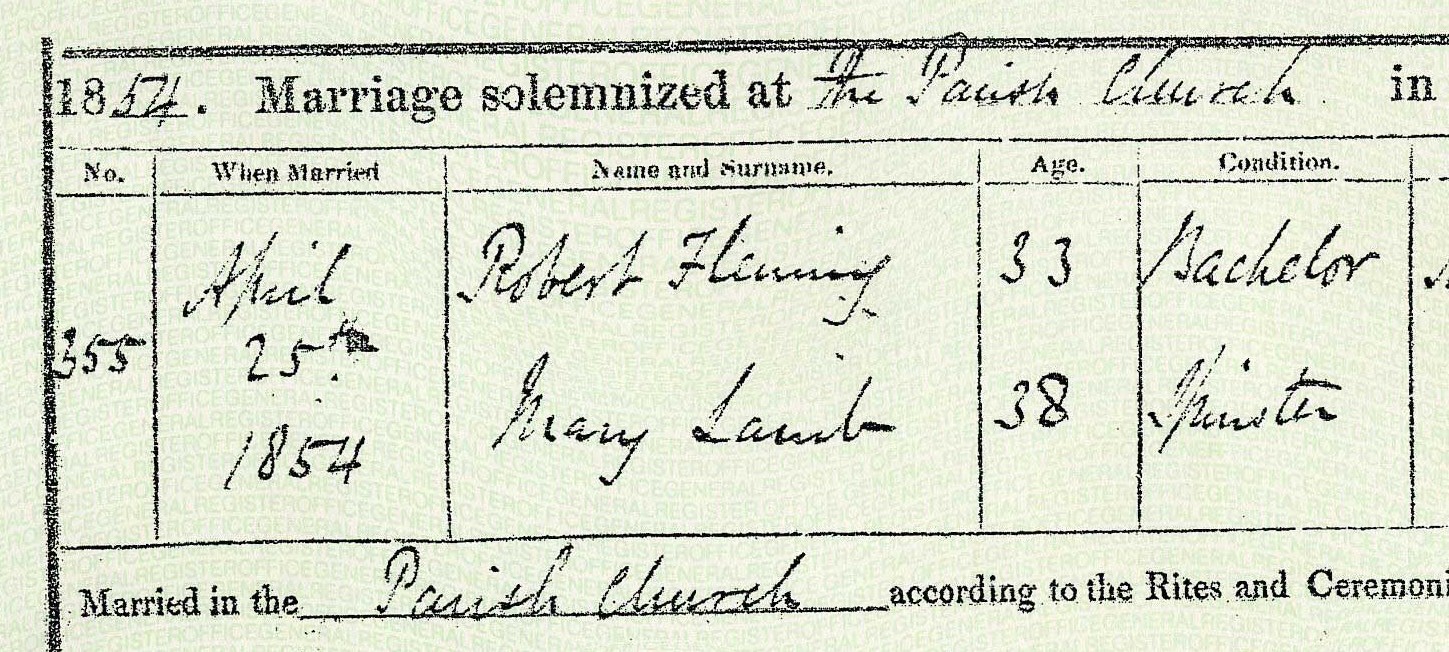 1854. Marriage solemnized at the Parish Church in
No. When Married Name and Surname. Age. Condition.
April Robert Fleming 33 Bachelor
355 25th
Mary Lamb 38 Spinster
1854
Married in the Parish Church according to the Rites and Ceremoni